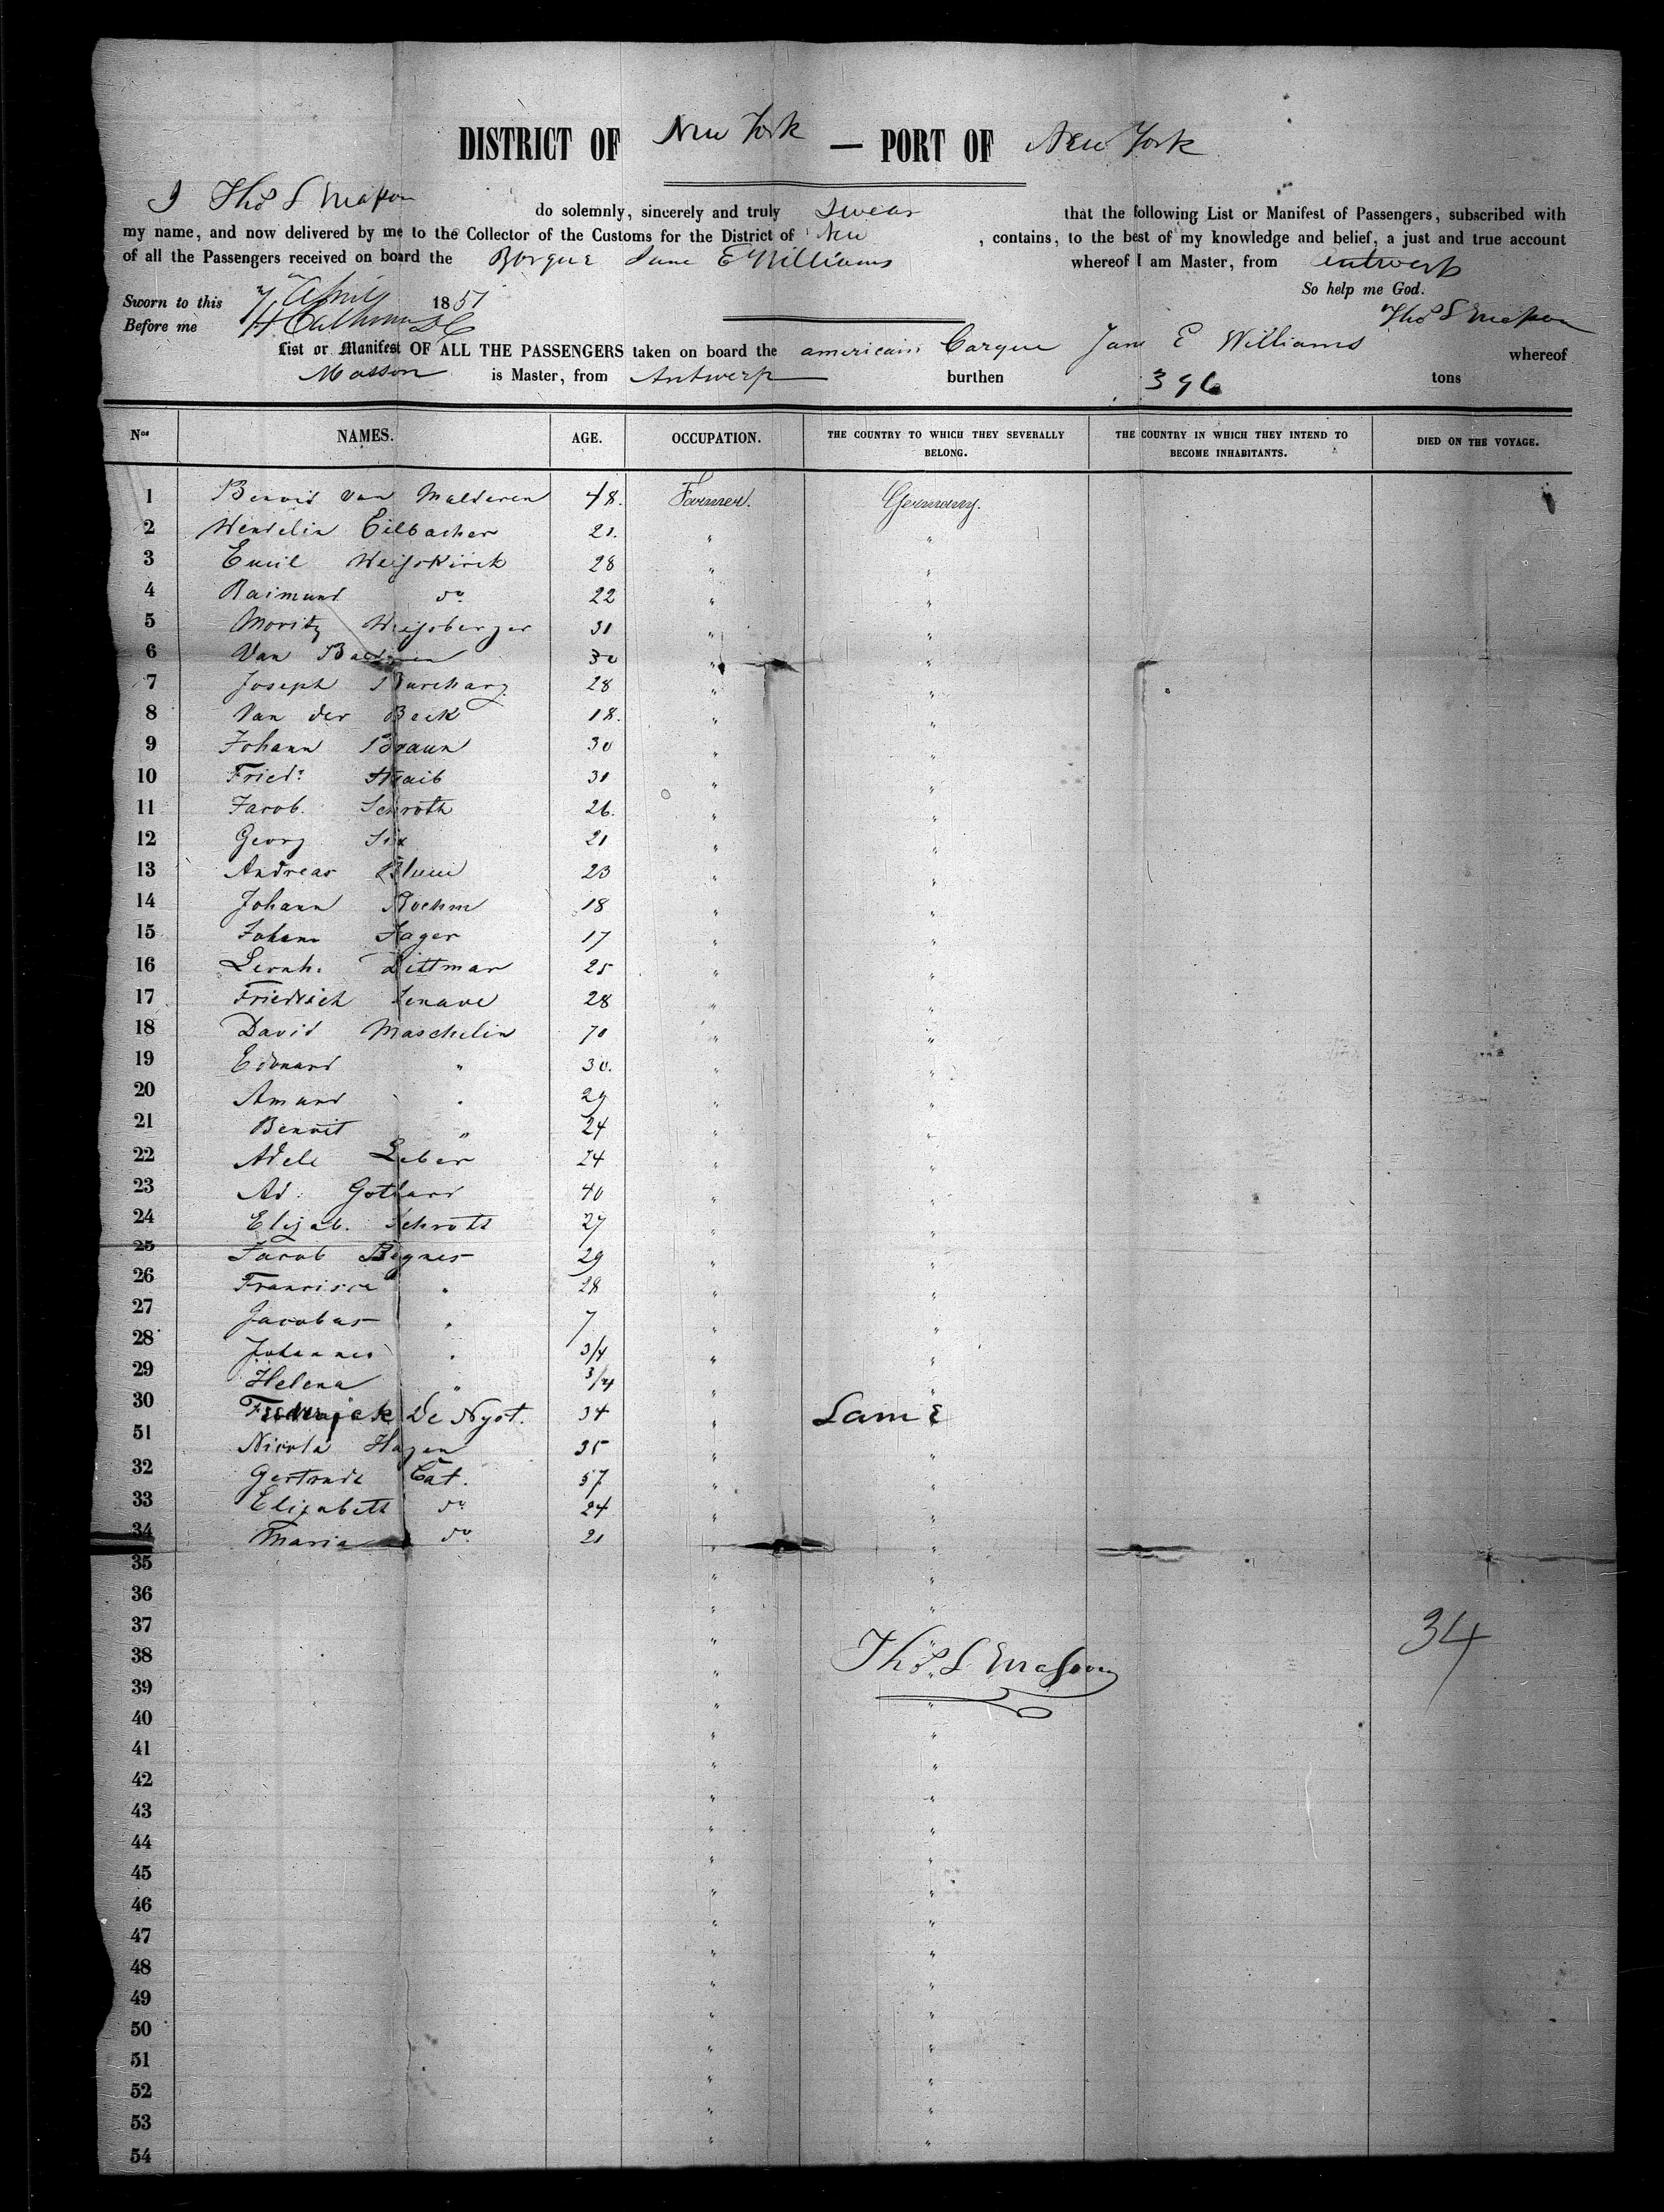 DISTRICT OF New York — PORT OF New York
I Thos S Mason do solemnly, sincerely and truly Swear that the following List or Manifest of Passengers, subscribed with
my name, and now delivered by me to the Collector of the Customs for the District of New , contains, to the best of my knowledge and belief, a just and true account
of all the Passengers received on board the Barque Jane E Williams whereof I am Master, from Antwerp
So help me God.
Sworn to this 7 April 1851
Before me H Calhoun DC
Thos S Mason
List or Manifest OF ALL THE PASSENGERS taken on board the americain barque Jane E Williams whereof
Masson is Master, from Antwerp burthen 396 tons
Nos NAMES. AGE. OCCUPATION. THE COUNTRY TO WHICH THEY SEVERALLY BELONG. THE COUNTRY IN WHICH THEY INTEND TO BECOME INHABITANTS. DIED ON THE VOYAGE.
1 Benoid van Malderen 48. Farmer. Germany.
2 Wendelin Eilbacher 21. " "
3 Emil Weisskirch 28 " "
4 Raimund do 22 " "
5 Moritz Weissberger 31 " "
6 Van 30 " "
7 Joseph Burcharz 28 " "
8 Van der Beek 18. " "
9 Johann Braun 30 " "
10 Friedr 31 " "
11 Jacob Schroth 26. " "
12 Georg Six 21 " "
13 Andreas Blum 23 " "
14 Johann Boehm 18 " "
15 Johann Hager 17 " "
16 Lernh. Dittmar 25 " "
17 Friedrich 28 " "
18 David Maschelin 70 " "
19 Edouard " 30. " "
20 Amand " 29 " "
21 Benoit " 24 " "
22 Adele Leber 24 " "
23 Ad: Gothard 40 " "
24 Elizab. Schroth 27 " "
25 Jacob Begnes 29 " "
26 Francisca " 28 " "
27 Jacobus " 7 " "
28 Johannes " 3/4 " "
29 Helena " 3/4 " "
30 Frederick De Nyst. 34 " Same
51 Nicola Hagen 35 " "
32 Gertrude Cat. 57 " "
33 Elizabeth do 24 " "
34 Maria do. 21 " "
35 " "
36 " "
37 " " 34
38 " " Thos S Mason
39 " "
40 " "
41 " "
42 " "
43 " "
44 " "
45 " "
46 " "
47 " "
48 " "
49 " "
50 " "
51 " "
52 " "
53 " "
54